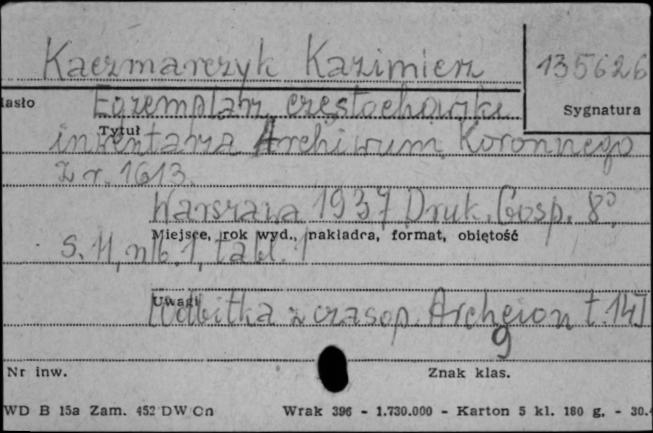 Kaczmarczyk Kazimierz 135626
Hasło Egzemplarz częstochowski Sygnatura
Tytuł
inwentarza Archiwum Koronnego
z r. 1613.
Warszawa 1937 Druk. Gosp. 8°,
Miejsce, rok wyd., nakładca, format, obiętość
s. 11, nlb. 1, tabl. 1
Uwagi
[Odbitka z czasop. Archeion t. 14]
9
Nr inw. Znak klas.
WD B 15a Zam. 452 DW Cn Wrak 396 - 1.730.000 - Karton 5 kl. 180 g. - 30.